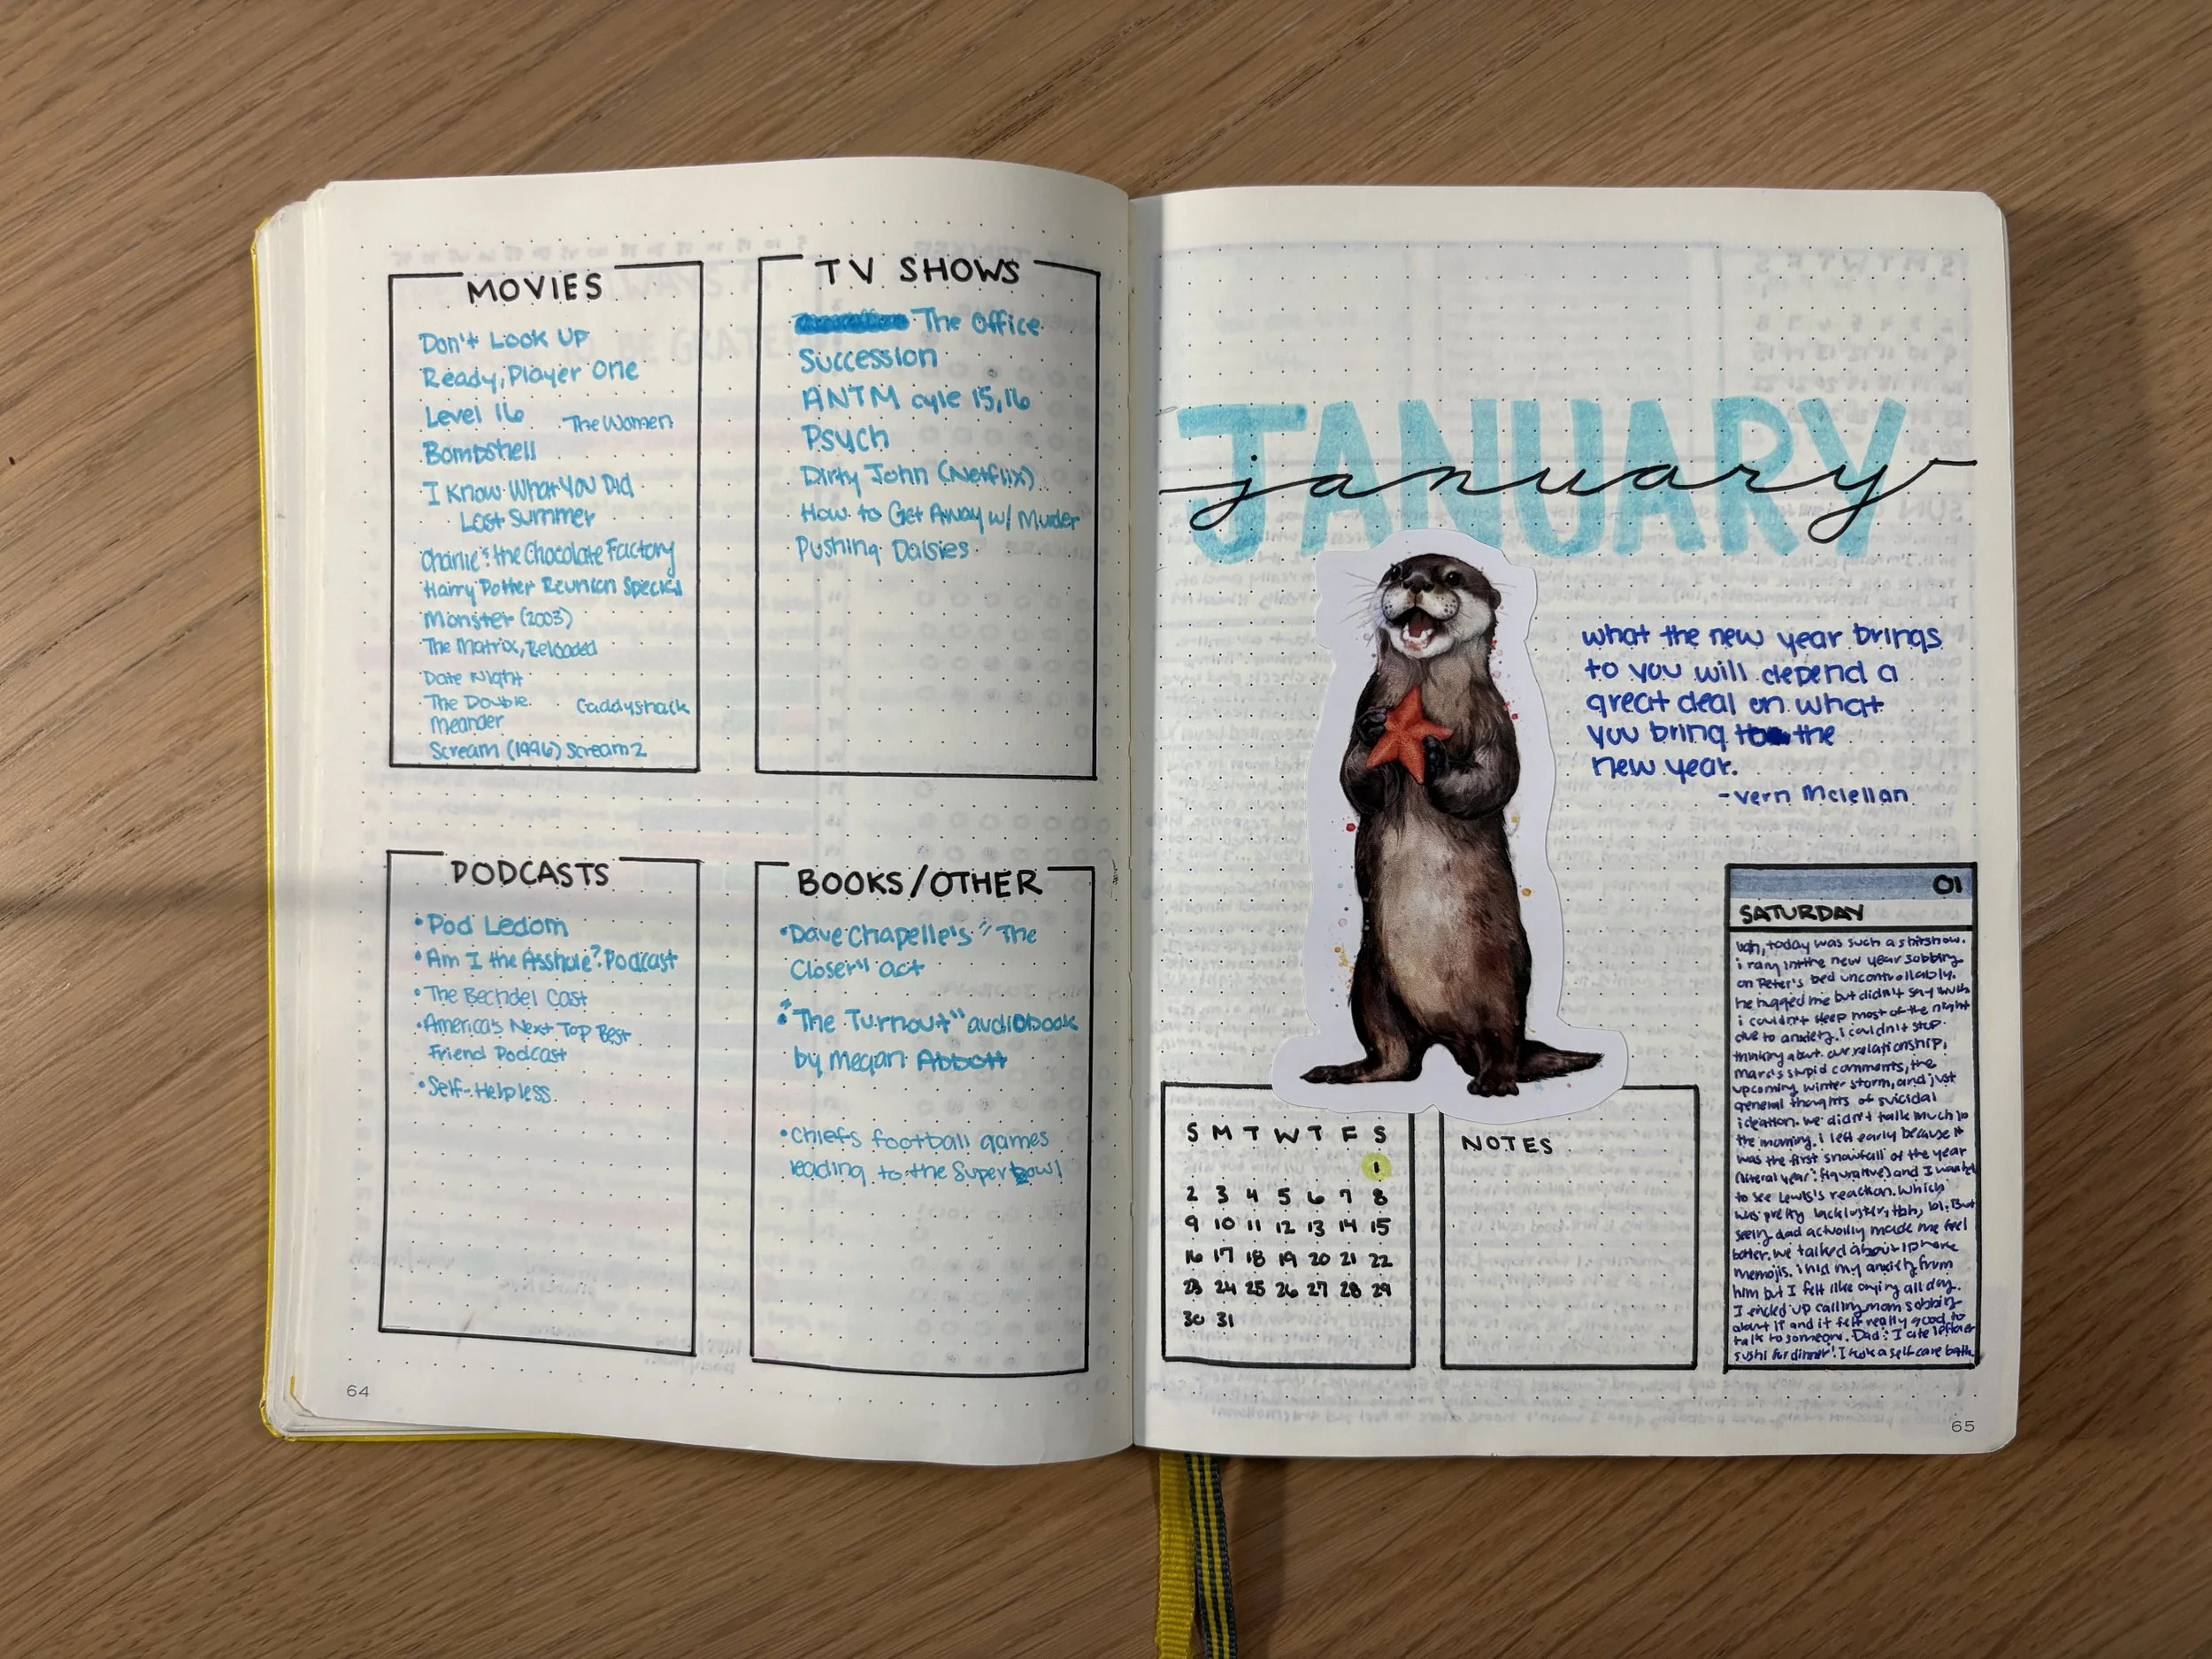 MOVIES
Don't Look Up
Ready, Player One
Level 16
The Women
Bombshell
I Know What You Did
Last Summer
Charlie & the Chocolate Factory
Harry Potter Reunion Special
Monster (2003)
The Matrix, Reloaded
Date Night
The Double
Caddyshack
Meander
Scream (1996) Scream 2
TV SHOWS
The Office
Succession
ANTM cyle 15, 16
Psych
Dirty John (Netflix)
How to Get Away w/ Murder
Pushing Daisies
PODCASTS
• Pod Ledom
• Am I the Asshole? Podcast
• The Bechdel Cast
• America's Next Top Best
Friend Podcast
• Self-Helpless
BOOKS/OTHER
• Dave Chapelle's "The
Closer" act
• "The Turnout" audiobook
by Megan Abbott
• Chiefs football games
leading to the Super bowl
64
JANUARY
january
what the new year brings
to you will depend a
great deal on what
you bring to the
new year.
- Vern Mclellan
S M T W T F S
1
2 3 4 5 6 7 8
9 10 11 12 13 14 15
16 17 18 19 20 21 22
23 24 25 26 27 28 29
30 31
NOTES
01
SATURDAY
ugh, today was such a shitshow.
i rang in the new year sobbing
on Peter's bed uncontrollably.
he hugged me but didn't say much
i couldn't sleep most of the night
due to anxiety. i couldn't stop
thinking about our relationship,
Marc's stupid comments, the
upcoming winter storm, and just
general thoughts of suicidal
ideation. we didn't talk much in
the morning. i left early because it
was the first snowfall of the year
(literal year & figurative) and I wanted
to see Lewis's reaction. Which
was pretty lackluster, tbh, lol. But
seeing dad actually made me feel
better. we talked about iphone
memojis. i hid my anxiety from
him but I felt like crying all day.
I ended up calling mom sobbing
about it and it felt really good to
talk to someone. Dad & I ate leftover
sushi for dinner! I took a self care bath.
65